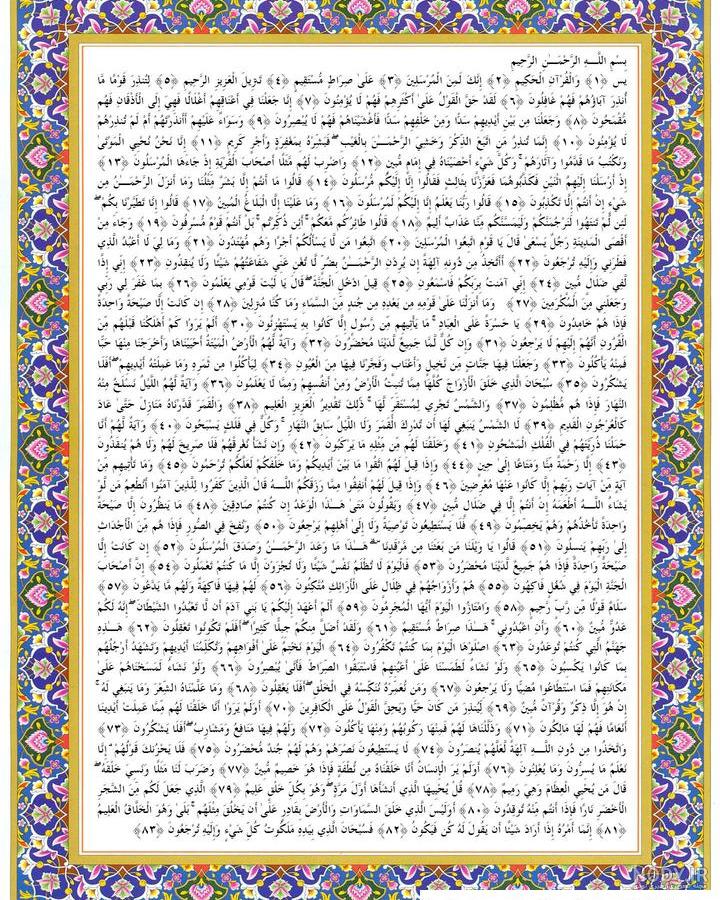 بِسْمِ اللَّـهِ الرَّحْمَـٰنِ الرَّحِيمِ
يس ﴿١﴾ وَالْقُرْآنِ الْحَكِيمِ ﴿٢﴾ إِنَّكَ لَمِنَ الْمُرْسَلِينَ ﴿٣﴾ عَلَىٰ صِرَاطٍ مُّسْتَقِيمٍ ﴿٤﴾ تَنزِيلَ الْعَزِيزِ الرَّحِيمِ ﴿٥﴾ لِتُنذِرَ قَوْمًا مَّا
أُنذِرَ آبَاؤُهُمْ فَهُمْ غَافِلُونَ ﴿٦﴾ لَقَدْ حَقَّ الْقَوْلُ عَلَىٰ أَكْثَرِهِمْ فَهُمْ لَا يُؤْمِنُونَ ﴿٧﴾ إِنَّا جَعَلْنَا فِي أَعْنَاقِهِمْ أَغْلَالًا فَهِيَ إِلَى الْأَذْقَانِ فَهُم
مُّقْمَحُونَ ﴿٨﴾ وَجَعَلْنَا مِن بَيْنِ أَيْدِيهِمْ سَدًّا وَمِنْ خَلْفِهِمْ سَدًّا فَأَغْشَيْنَاهُمْ فَهُمْ لَا يُبْصِرُونَ ﴿٩﴾ وَسَوَاءٌ عَلَيْهِمْ أَأَنذَرْتَهُمْ أَمْ لَمْ تُنذِرْهُمْ
لَا يُؤْمِنُونَ ﴿١٠﴾ إِنَّمَا تُنذِرُ مَنِ اتَّبَعَ الذِّكْرَ وَخَشِيَ الرَّحْمَـٰنَ بِالْغَيْبِ ۖ فَبَشِّرْهُ بِمَغْفِرَةٍ وَأَجْرٍ كَرِيمٍ ﴿١١﴾ إِنَّا نَحْنُ نُحْيِي الْمَوْتَىٰ
وَنَكْتُبُ مَا قَدَّمُوا وَآثَارَهُمْ ۚ وَكُلَّ شَيْءٍ أَحْصَيْنَاهُ فِي إِمَامٍ مُّبِينٍ ﴿١٢﴾ وَاضْرِبْ لَهُم مَّثَلًا أَصْحَابَ الْقَرْيَةِ إِذْ جَاءَهَا الْمُرْسَلُونَ ﴿١٣﴾
إِذْ أَرْسَلْنَا إِلَيْهِمُ اثْنَيْنِ فَكَذَّبُوهُمَا فَعَزَّزْنَا بِثَالِثٍ فَقَالُوا إِنَّا إِلَيْكُم مُّرْسَلُونَ ﴿١٤﴾ قَالُوا مَا أَنتُمْ إِلَّا بَشَرٌ مِّثْلُنَا وَمَا أَنزَلَ الرَّحْمَـٰنُ مِن
شَيْءٍ إِنْ أَنتُمْ إِلَّا تَكْذِبُونَ ﴿١٥﴾ قَالُوا رَبُّنَا يَعْلَمُ إِنَّا إِلَيْكُمْ لَمُرْسَلُونَ ﴿١٦﴾ وَمَا عَلَيْنَا إِلَّا الْبَلَاغُ الْمُبِينُ ﴿١٧﴾ قَالُوا إِنَّا تَطَيَّرْنَا بِكُمْ ۖ
لَئِن لَّمْ تَنتَهُوا لَنَرْجُمَنَّكُمْ وَلَيَمَسَّنَّكُم مِّنَّا عَذَابٌ أَلِيمٌ ﴿١٨﴾ قَالُوا طَائِرُكُم مَّعَكُمْ ۚ أَئِن ذُكِّرْتُم ۚ بَلْ أَنتُمْ قَوْمٌ مُّسْرِفُونَ ﴿١٩﴾ وَجَاءَ مِنْ
أَقْصَى الْمَدِينَةِ رَجُلٌ يَسْعَىٰ قَالَ يَا قَوْمِ اتَّبِعُوا الْمُرْسَلِينَ ﴿٢٠﴾ اتَّبِعُوا مَن لَّا يَسْأَلُكُمْ أَجْرًا وَهُم مُّهْتَدُونَ ﴿٢١﴾ وَمَا لِيَ لَا أَعْبُدُ الَّذِي
فَطَرَنِي وَإِلَيْهِ تُرْجَعُونَ ﴿٢٢﴾ أَأَتَّخِذُ مِن دُونِهِ آلِهَةً إِن يُرِدْنِ الرَّحْمَـٰنُ بِضُرٍّ لَّا تُغْنِ عَنِّي شَفَاعَتُهُمْ شَيْئًا وَلَا يُنقِذُونِ ﴿٢٣﴾ إِنِّي إِذًا
لَّفِي ضَلَالٍ مُّبِينٍ ﴿٢٤﴾ إِنِّي آمَنتُ بِرَبِّكُمْ فَاسْمَعُونِ ﴿٢٥﴾ قِيلَ ادْخُلِ الْجَنَّةَ ۖ قَالَ يَا لَيْتَ قَوْمِي يَعْلَمُونَ ﴿٢٦﴾ بِمَا غَفَرَ لِي رَبِّي
وَجَعَلَنِي مِنَ الْمُكْرَمِينَ ﴿٢٧﴾ وَمَا أَنزَلْنَا عَلَىٰ قَوْمِهِ مِن بَعْدِهِ مِن جُندٍ مِّنَ السَّمَاءِ وَمَا كُنَّا مُنزِلِينَ ﴿٢٨﴾ إِن كَانَتْ إِلَّا صَيْحَةً وَاحِدَةً
فَإِذَا هُمْ خَامِدُونَ ﴿٢٩﴾ يَا حَسْرَةً عَلَى الْعِبَادِ ۚ مَا يَأْتِيهِم مِّن رَّسُولٍ إِلَّا كَانُوا بِهِ يَسْتَهْزِئُونَ ﴿٣٠﴾ أَلَمْ يَرَوْا كَمْ أَهْلَكْنَا قَبْلَهُم مِّنَ
الْقُرُونِ أَنَّهُمْ إِلَيْهِمْ لَا يَرْجِعُونَ ﴿٣١﴾ وَإِن كُلٌّ لَّمَّا جَمِيعٌ لَّدَيْنَا مُحْضَرُونَ ﴿٣٢﴾ وَآيَةٌ لَّهُمُ الْأَرْضُ الْمَيْتَةُ أَحْيَيْنَاهَا وَأَخْرَجْنَا مِنْهَا حَبًّا
فَمِنْهُ يَأْكُلُونَ ﴿٣٣﴾ وَجَعَلْنَا فِيهَا جَنَّاتٍ مِّن نَّخِيلٍ وَأَعْنَابٍ وَفَجَّرْنَا فِيهَا مِنَ الْعُيُونِ ﴿٣٤﴾ لِيَأْكُلُوا مِن ثَمَرِهِ وَمَا عَمِلَتْهُ أَيْدِيهِمْ ۖ أَفَلَا
يَشْكُرُونَ ﴿٣٥﴾ سُبْحَانَ الَّذِي خَلَقَ الْأَزْوَاجَ كُلَّهَا مِمَّا تُنبِتُ الْأَرْضُ وَمِنْ أَنفُسِهِمْ وَمِمَّا لَا يَعْلَمُونَ ﴿٣٦﴾ وَآيَةٌ لَّهُمُ اللَّيْلُ نَسْلَخُ مِنْهُ
النَّهَارَ فَإِذَا هُم مُّظْلِمُونَ ﴿٣٧﴾ وَالشَّمْسُ تَجْرِي لِمُسْتَقَرٍّ لَّهَا ۚ ذَٰلِكَ تَقْدِيرُ الْعَزِيزِ الْعَلِيمِ ﴿٣٨﴾ وَالْقَمَرَ قَدَّرْنَاهُ مَنَازِلَ حَتَّىٰ عَادَ
كَالْعُرْجُونِ الْقَدِيمِ ﴿٣٩﴾ لَا الشَّمْسُ يَنبَغِي لَهَا أَن تُدْرِكَ الْقَمَرَ وَلَا اللَّيْلُ سَابِقُ النَّهَارِ ۚ وَكُلٌّ فِي فَلَكٍ يَسْبَحُونَ ﴿٤٠﴾ وَآيَةٌ لَّهُمْ أَنَّا
حَمَلْنَا ذُرِّيَّتَهُمْ فِي الْفُلْكِ الْمَشْحُونِ ﴿٤١﴾ وَخَلَقْنَا لَهُم مِّن مِّثْلِهِ مَا يَرْكَبُونَ ﴿٤٢﴾ وَإِن نَّشَأْ نُغْرِقْهُمْ فَلَا صَرِيخَ لَهُمْ وَلَا هُمْ يُنقَذُونَ
﴿٤٣﴾ إِلَّا رَحْمَةً مِّنَّا وَمَتَاعًا إِلَىٰ حِينٍ ﴿٤٤﴾ وَإِذَا قِيلَ لَهُمُ اتَّقُوا مَا بَيْنَ أَيْدِيكُمْ وَمَا خَلْفَكُمْ لَعَلَّكُمْ تُرْحَمُونَ ﴿٤٥﴾ وَمَا تَأْتِيهِم مِّنْ
آيَةٍ مِّنْ آيَاتِ رَبِّهِمْ إِلَّا كَانُوا عَنْهَا مُعْرِضِينَ ﴿٤٦﴾ وَإِذَا قِيلَ لَهُمْ أَنفِقُوا مِمَّا رَزَقَكُمُ اللَّـهُ قَالَ الَّذِينَ كَفَرُوا لِلَّذِينَ آمَنُوا أَنُطْعِمُ مَن لَّوْ
يَشَاءُ اللَّـهُ أَطْعَمَهُ إِنْ أَنتُمْ إِلَّا فِي ضَلَالٍ مُّبِينٍ ﴿٤٧﴾ وَيَقُولُونَ مَتَىٰ هَـٰذَا الْوَعْدُ إِن كُنتُمْ صَادِقِينَ ﴿٤٨﴾ مَا يَنظُرُونَ إِلَّا صَيْحَةً
وَاحِدَةً تَأْخُذُهُمْ وَهُمْ يَخِصِّمُونَ ﴿٤٩﴾ فَلَا يَسْتَطِيعُونَ تَوْصِيَةً وَلَا إِلَىٰ أَهْلِهِمْ يَرْجِعُونَ ﴿٥٠﴾ وَنُفِخَ فِي الصُّورِ فَإِذَا هُم مِّنَ الْأَجْدَاثِ
إِلَىٰ رَبِّهِمْ يَنسِلُونَ ﴿٥١﴾ قَالُوا يَا وَيْلَنَا مَن بَعَثَنَا مِن مَّرْقَدِنَا ۜ ۗ هَـٰذَا مَا وَعَدَ الرَّحْمَـٰنُ وَصَدَقَ الْمُرْسَلُونَ ﴿٥٢﴾ إِن كَانَتْ إِلَّا
صَيْحَةً وَاحِدَةً فَإِذَا هُمْ جَمِيعٌ لَّدَيْنَا مُحْضَرُونَ ﴿٥٣﴾ فَالْيَوْمَ لَا تُظْلَمُ نَفْسٌ شَيْئًا وَلَا تُجْزَوْنَ إِلَّا مَا كُنتُمْ تَعْمَلُونَ ﴿٥٤﴾ إِنَّ أَصْحَابَ
الْجَنَّةِ الْيَوْمَ فِي شُغُلٍ فَاكِهُونَ ﴿٥٥﴾ هُمْ وَأَزْوَاجُهُمْ فِي ظِلَالٍ عَلَى الْأَرَائِكِ مُتَّكِئُونَ ﴿٥٦﴾ لَهُمْ فِيهَا فَاكِهَةٌ وَلَهُم مَّا يَدَّعُونَ ﴿٥٧﴾
سَلَامٌ قَوْلًا مِّن رَّبٍّ رَّحِيمٍ ﴿٥٨﴾ وَامْتَازُوا الْيَوْمَ أَيُّهَا الْمُجْرِمُونَ ﴿٥٩﴾ أَلَمْ أَعْهَدْ إِلَيْكُمْ يَا بَنِي آدَمَ أَن لَّا تَعْبُدُوا الشَّيْطَانَ ۖ إِنَّهُ لَكُمْ
عَدُوٌّ مُّبِينٌ ﴿٦٠﴾ وَأَنِ اعْبُدُونِي ۚ هَـٰذَا صِرَاطٌ مُّسْتَقِيمٌ ﴿٦١﴾ وَلَقَدْ أَضَلَّ مِنكُمْ جِبِلًّا كَثِيرًا ۖ أَفَلَمْ تَكُونُوا تَعْقِلُونَ ﴿٦٢﴾ هَـٰذِهِ
جَهَنَّمُ الَّتِي كُنتُمْ تُوعَدُونَ ﴿٦٣﴾ اصْلَوْهَا الْيَوْمَ بِمَا كُنتُمْ تَكْفُرُونَ ﴿٦٤﴾ الْيَوْمَ نَخْتِمُ عَلَىٰ أَفْوَاهِهِمْ وَتُكَلِّمُنَا أَيْدِيهِمْ وَتَشْهَدُ أَرْجُلُهُم
بِمَا كَانُوا يَكْسِبُونَ ﴿٦٥﴾ وَلَوْ نَشَاءُ لَطَمَسْنَا عَلَىٰ أَعْيُنِهِمْ فَاسْتَبَقُوا الصِّرَاطَ فَأَنَّىٰ يُبْصِرُونَ ﴿٦٦﴾ وَلَوْ نَشَاءُ لَمَسَخْنَاهُمْ عَلَىٰ
مَكَانَتِهِمْ فَمَا اسْتَطَاعُوا مُضِيًّا وَلَا يَرْجِعُونَ ﴿٦٧﴾ وَمَن نُّعَمِّرْهُ نُنَكِّسْهُ فِي الْخَلْقِ ۖ أَفَلَا يَعْقِلُونَ ﴿٦٨﴾ وَمَا عَلَّمْنَاهُ الشِّعْرَ وَمَا يَنبَغِي لَهُ ۚ
إِنْ هُوَ إِلَّا ذِكْرٌ وَقُرْآنٌ مُّبِينٌ ﴿٦٩﴾ لِّيُنذِرَ مَن كَانَ حَيًّا وَيَحِقَّ الْقَوْلُ عَلَى الْكَافِرِينَ ﴿٧٠﴾ أَوَلَمْ يَرَوْا أَنَّا خَلَقْنَا لَهُم مِّمَّا عَمِلَتْ أَيْدِينَا
أَنْعَامًا فَهُمْ لَهَا مَالِكُونَ ﴿٧١﴾ وَذَلَّلْنَاهَا لَهُمْ فَمِنْهَا رَكُوبُهُمْ وَمِنْهَا يَأْكُلُونَ ﴿٧٢﴾ وَلَهُمْ فِيهَا مَنَافِعُ وَمَشَارِبُ ۖ أَفَلَا يَشْكُرُونَ ﴿٧٣﴾
وَاتَّخَذُوا مِن دُونِ اللَّـهِ آلِهَةً لَّعَلَّهُمْ يُنصَرُونَ ﴿٧٤﴾ لَا يَسْتَطِيعُونَ نَصْرَهُمْ وَهُمْ لَهُمْ جُندٌ مُّحْضَرُونَ ﴿٧٥﴾ فَلَا يَحْزُنكَ قَوْلُهُمْ ۘ إِنَّا
نَعْلَمُ مَا يُسِرُّونَ وَمَا يُعْلِنُونَ ﴿٧٦﴾ أَوَلَمْ يَرَ الْإِنسَانُ أَنَّا خَلَقْنَاهُ مِن نُّطْفَةٍ فَإِذَا هُوَ خَصِيمٌ مُّبِينٌ ﴿٧٧﴾ وَضَرَبَ لَنَا مَثَلًا وَنَسِيَ خَلْقَهُ ۖ
قَالَ مَن يُحْيِي الْعِظَامَ وَهِيَ رَمِيمٌ ﴿٧٨﴾ قُلْ يُحْيِيهَا الَّذِي أَنشَأَهَا أَوَّلَ مَرَّةٍ ۖ وَهُوَ بِكُلِّ خَلْقٍ عَلِيمٌ ﴿٧٩﴾ الَّذِي جَعَلَ لَكُم مِّنَ الشَّجَرِ
الْأَخْضَرِ نَارًا فَإِذَا أَنتُم مِّنْهُ تُوقِدُونَ ﴿٨٠﴾ أَوَلَيْسَ الَّذِي خَلَقَ السَّمَاوَاتِ وَالْأَرْضَ بِقَادِرٍ عَلَىٰ أَن يَخْلُقَ مِثْلَهُم ۚ بَلَىٰ وَهُوَ الْخَلَّاقُ الْعَلِيمُ
﴿٨١﴾ إِنَّمَا أَمْرُهُ إِذَا أَرَادَ شَيْئًا أَن يَقُولَ لَهُ كُن فَيَكُونُ ﴿٨٢﴾ فَسُبْحَانَ الَّذِي بِيَدِهِ مَلَكُوتُ كُلِّ شَيْءٍ وَإِلَيْهِ تُرْجَعُونَ ﴿٨٣﴾